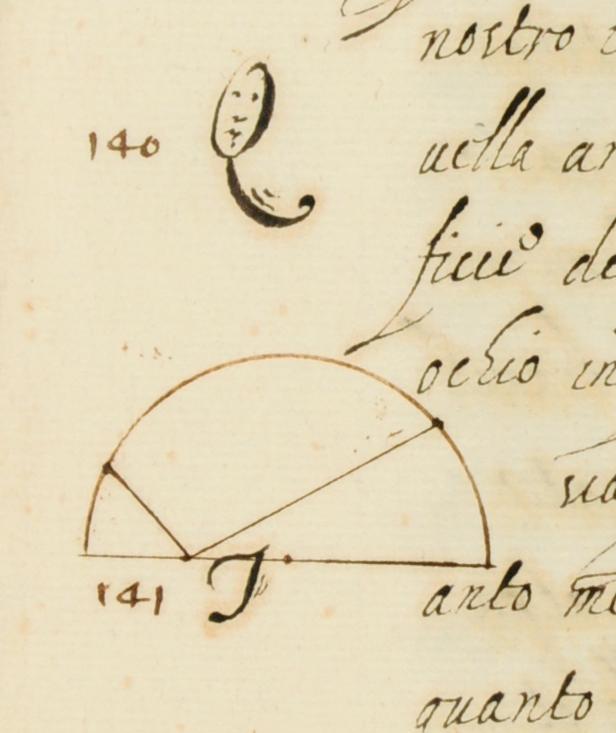 nostro
140 Q uella
ficie de
ochio in
141 T anto
quanto